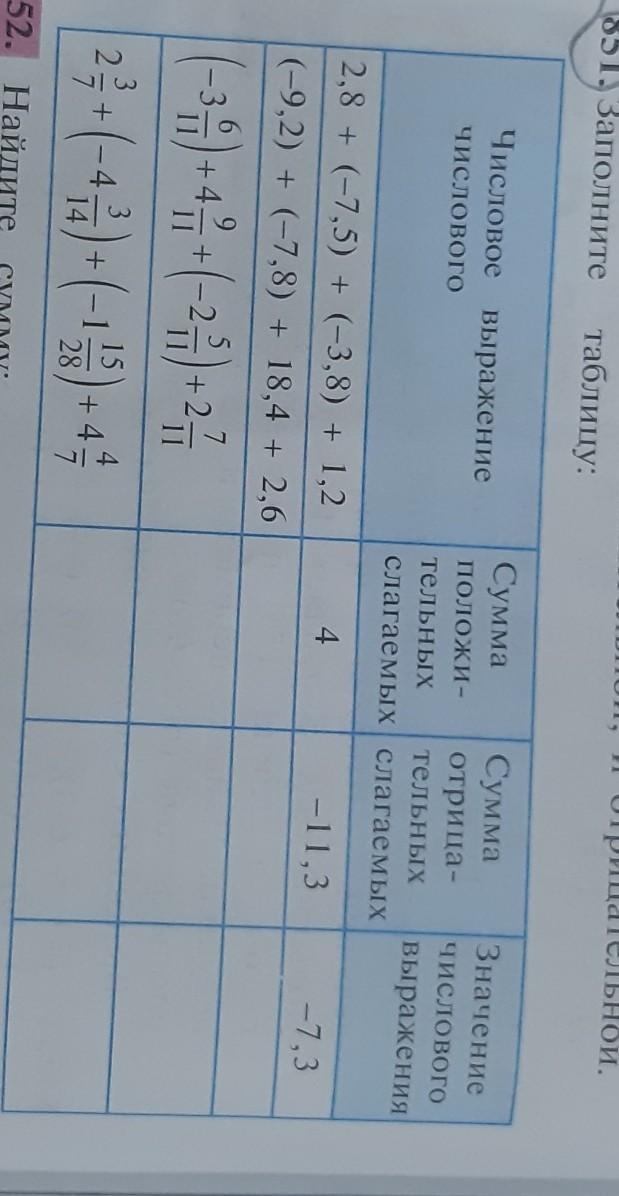 851. Заполните таблицу:
Числовое выражение
числового
Сумма
положи-
тельных
слагаемых
Сумма
отрица-
тельных
слагаемых
Значение
числового
выражения
2,8 + (−7,5) + (−3,8) + 1,2 4 −11,3 −7,3
(−9,2) + (−7,8) + 18,4 + 2,6
(−3 6/11) + 4 9/11 + (−2 5/11) + 2 7/11
2 3/7 + (−4 3/14) + (−1 15/28) + 4 4/7
52. Найдите сумму: